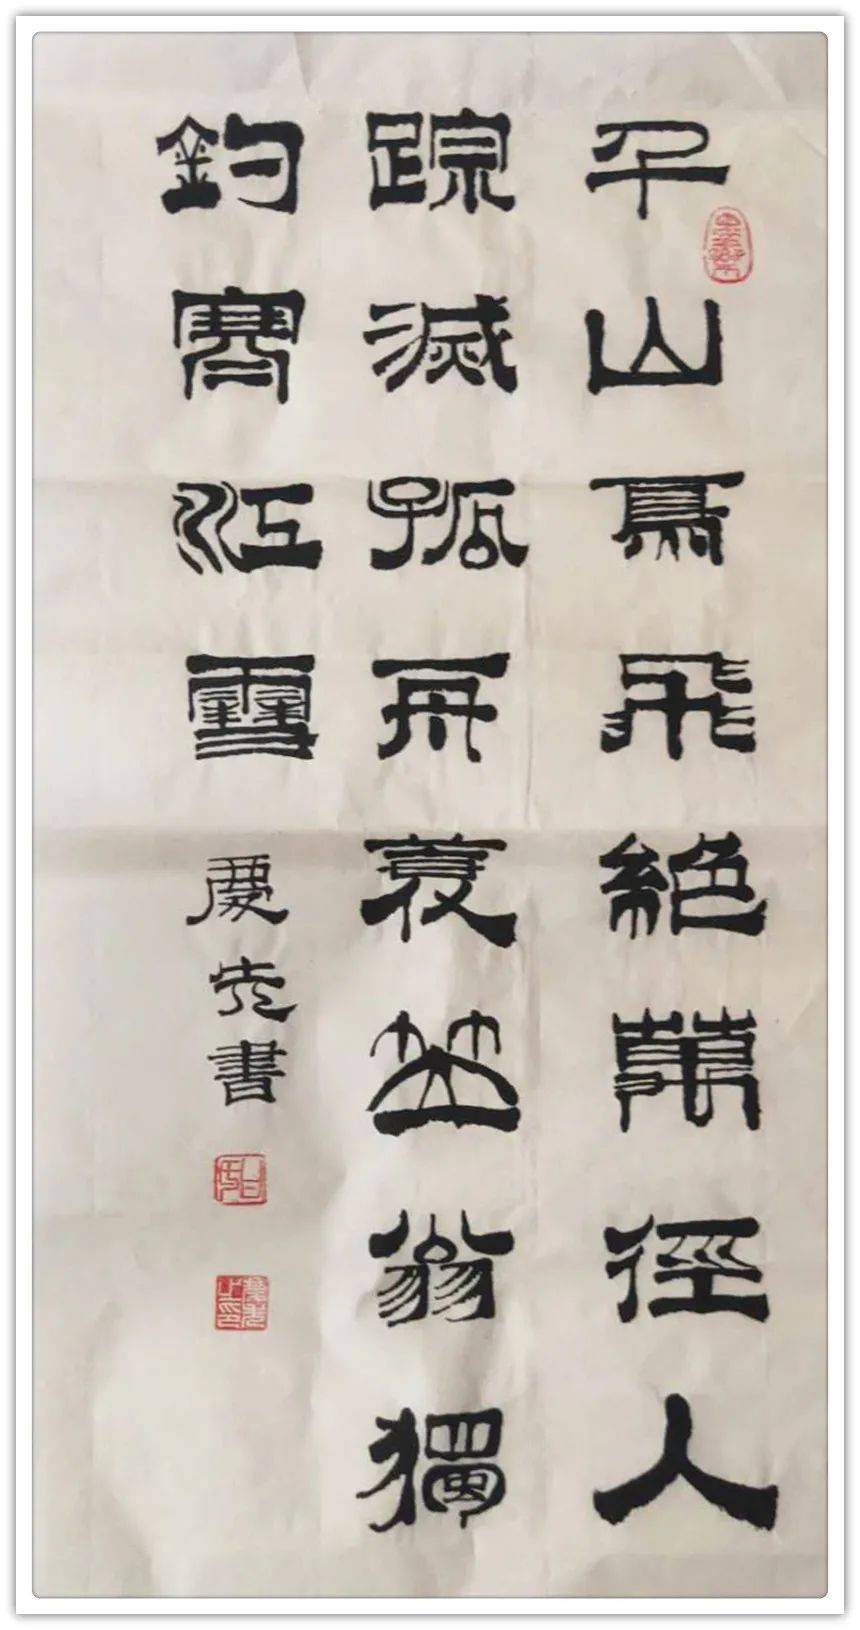 千山鳥飛絶萬徑人
踪滅孤舟蓑笠翁獨
釣寒江雪
慶書